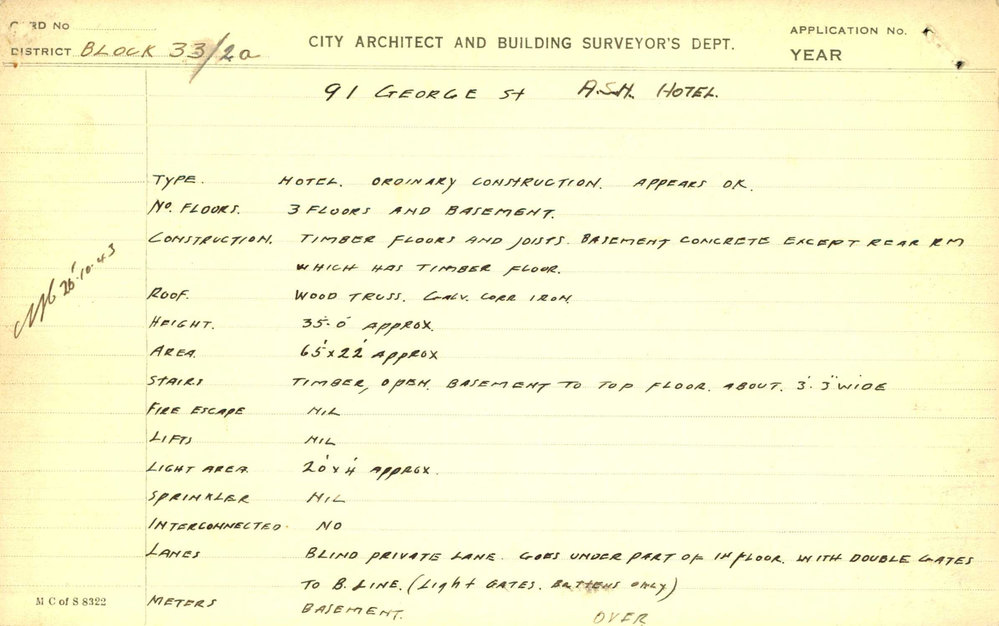 CARD No
DISTRICT BLOCK 33/2a
CITY ARCHITECT AND BUILDING SURVEYOR'S DEPT.
APPLICATION No.
YEAR
91 GEORGE St A.S.N. HOTEL.
TYPE. HOTEL. ORDINARY CONSTRUCTION. APPEARS OK.
No. FLOORS. 3 FLOORS AND BASEMENT.
CONSTRUCTION. TIMBER FLOORS AND JOISTS. BASEMENT CONCRETE EXCEPT REAR RM
WHICH HAS TIMBER FLOOR.
26.10.43
ROOF. WOOD TRUSS. GALV. CORR IRON.
HEIGHT. 35'-0" APPROX.
AREA. 65'x22' APPROX
STAIRS TIMBER, OPEN. BASEMENT TO TOP FLOOR. ABOUT. 3'-3" WIDE
FIRE ESCAPE NIL
LIFTS NIL
LIGHT AREA 20'x4' APPROX.
SPRINKLER NIL
INTERCONNECTED. NO
LANES BLIND PRIVATE LANE. GOES UNDER PART OF 1st FLOOR. WITH DOUBLE GATES
TO B. LINE. (Light GATES. BATTENS ONLY)
METERS BASEMENT.
OVER
M C of S 8322